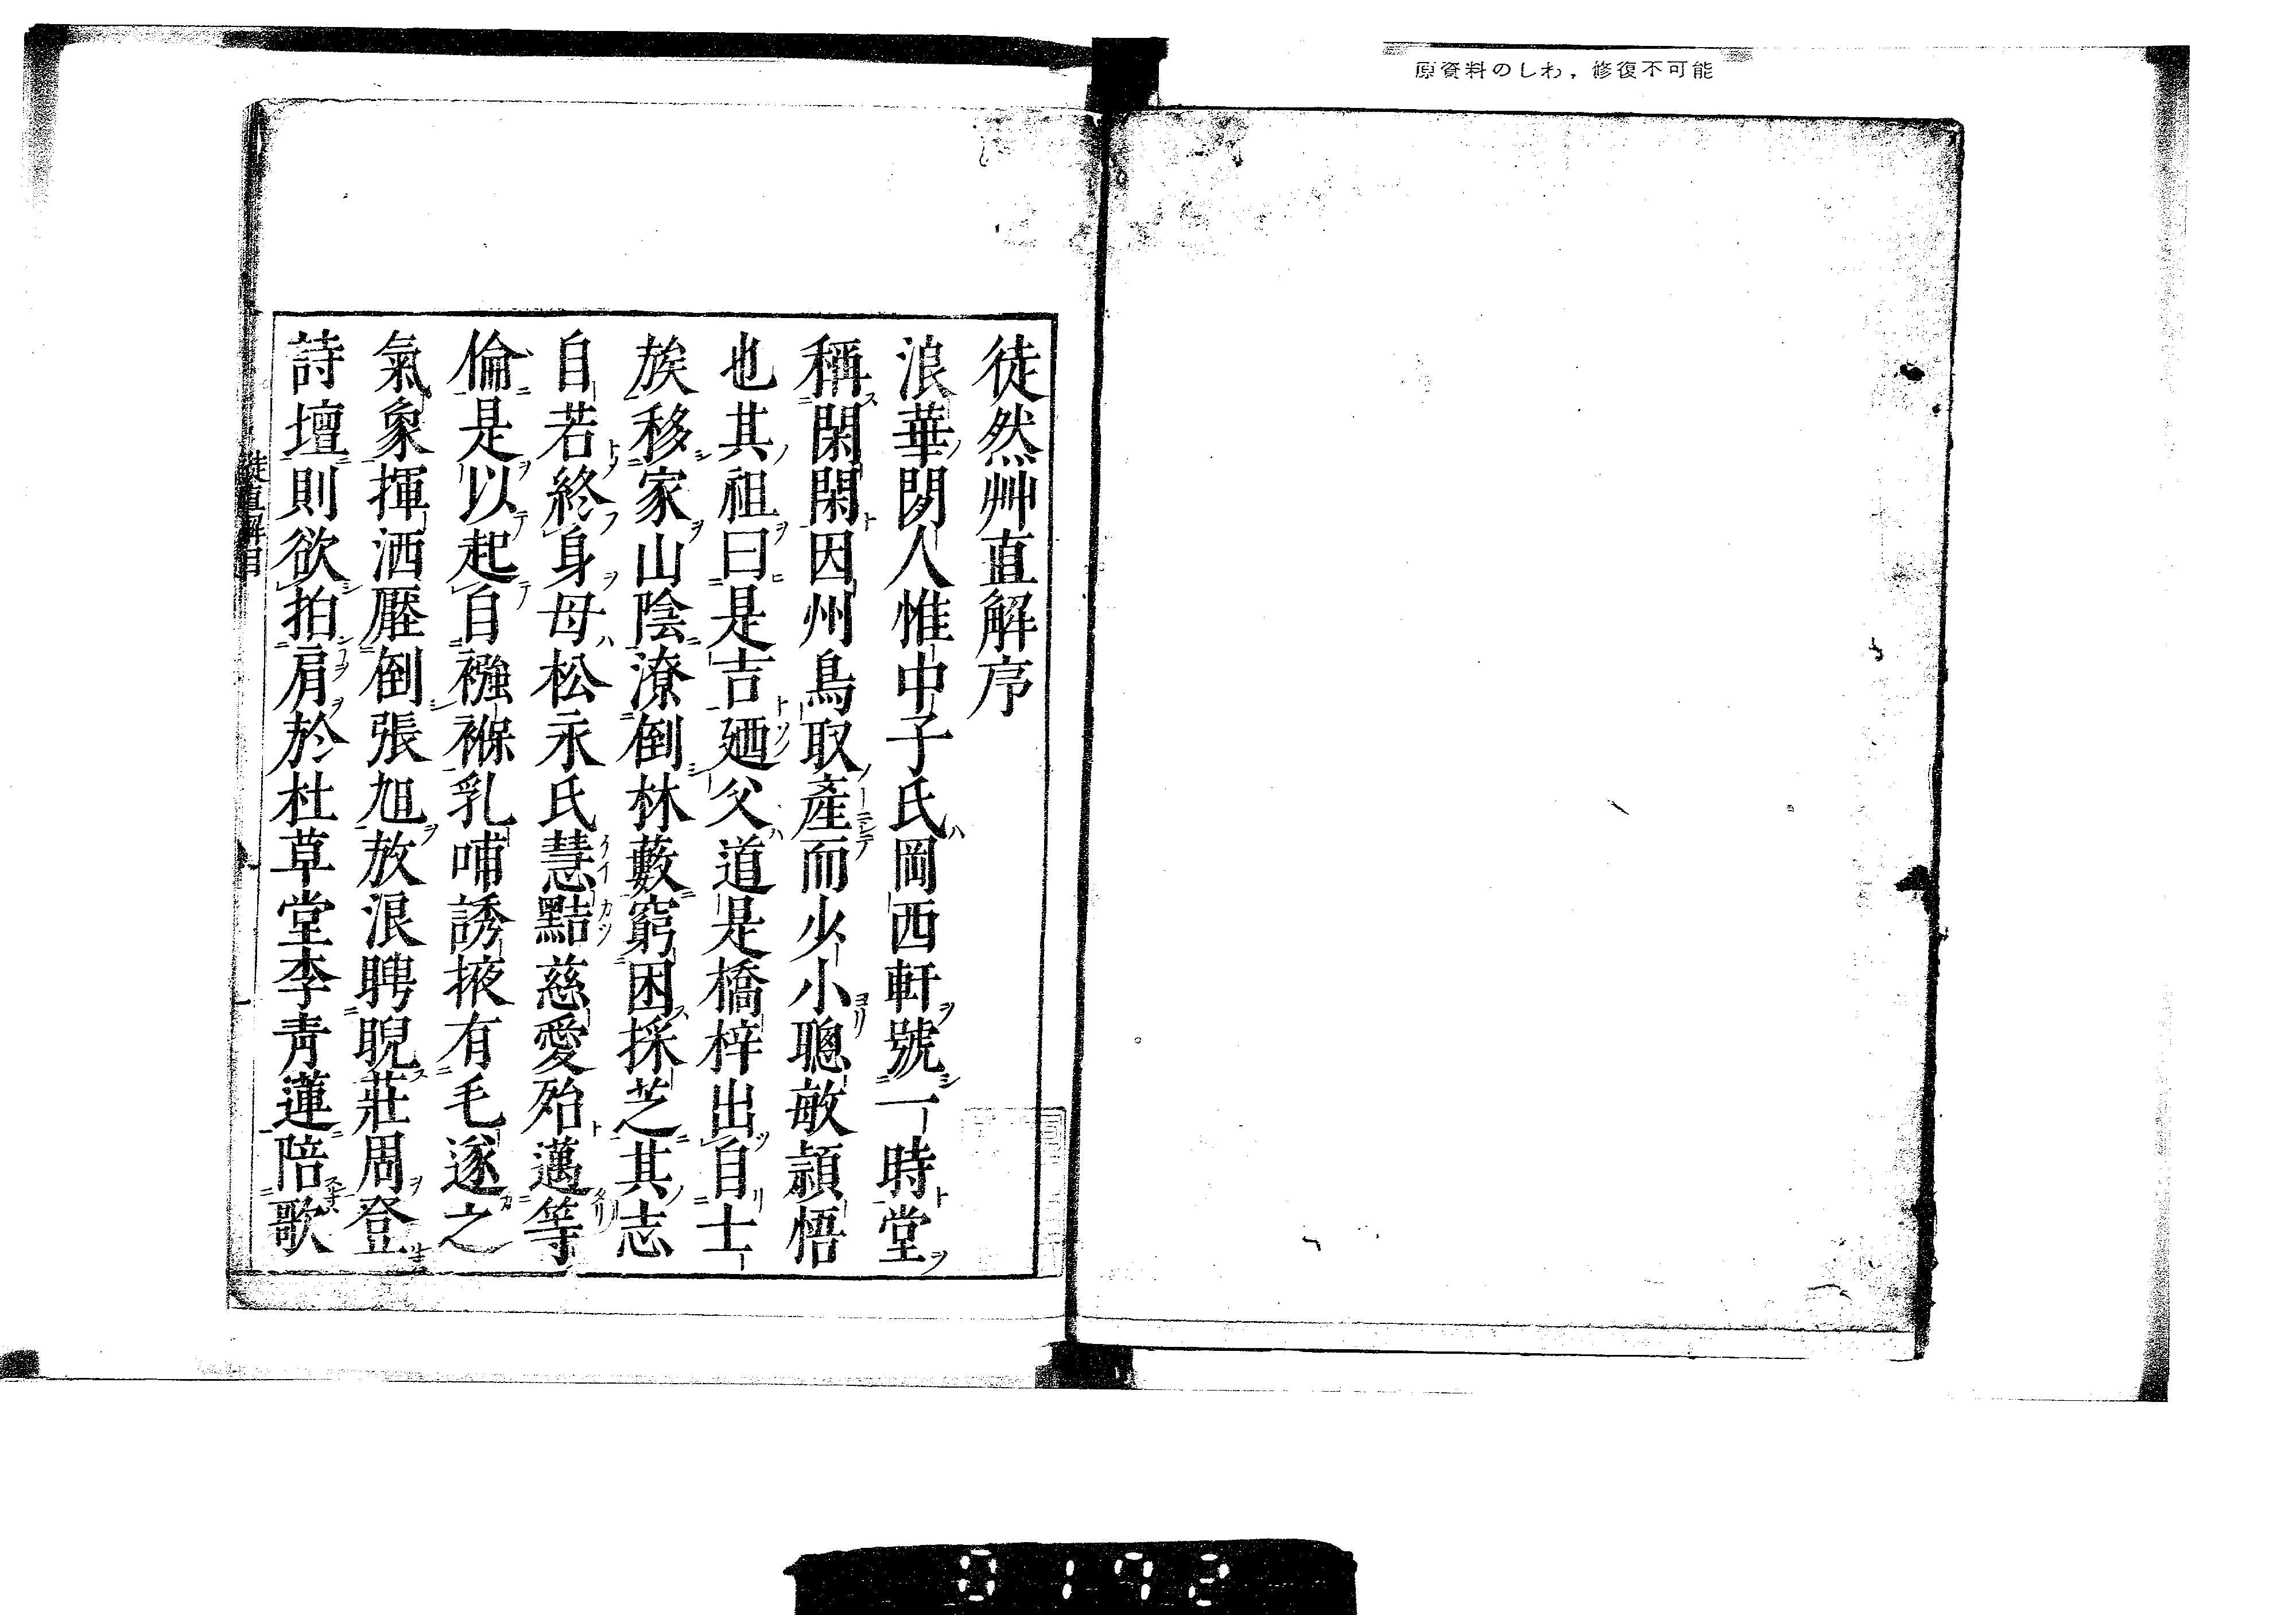 原資料のしわ，修復不可能
徒然艸直解序
浪華閒人惟中子氏岡西軒號一時堂
稱閑閑因州鳥取產而少小聰敏頴悟
也其祖曰是吉廼父道是橋梓出自士
族移家山陰潦倒林藪窮困採芝其志
自若終身母松永氏慧黠慈愛殆邁等
倫是以起自襁褓乳哺誘掖有毛遂之
氣象揮洒壓倒張旭放浪聘睨莊周登
詩壇則欲拍肩於杜草堂李青蓮陪歌
徒直解自
0192